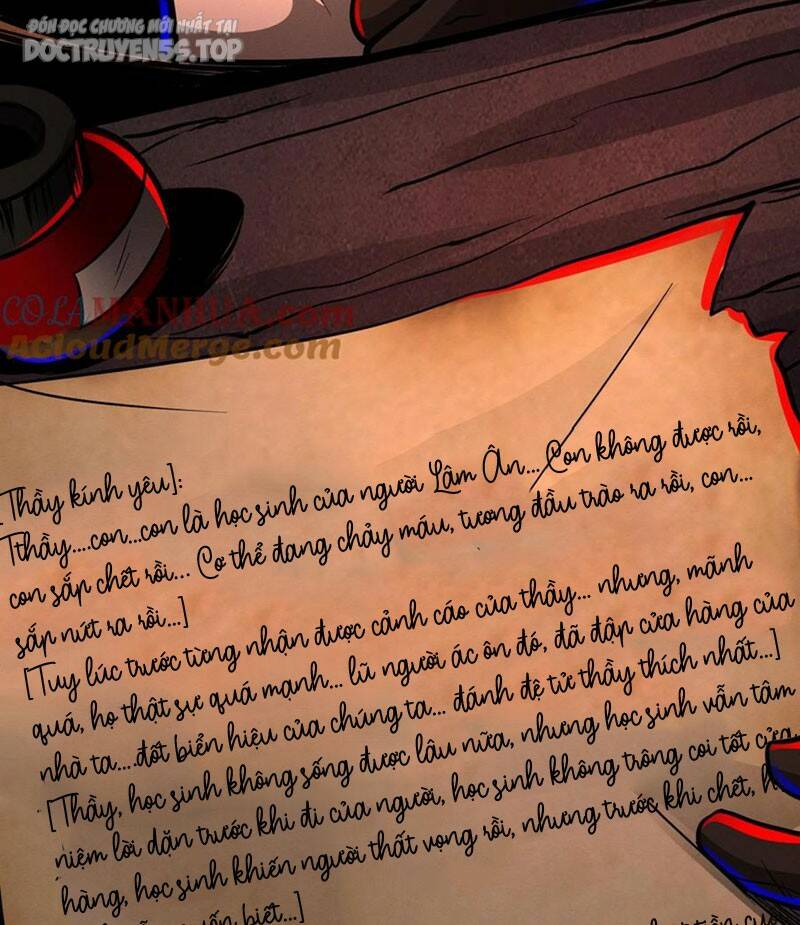 ĐÓN ĐỌC CHƯƠNG MỚI NHẤT TẠI
DOCTRUYEN5S.TOP
COLAMANHUA.COM
ACloudMerge.com
[Thầy kính yêu]:
Tthầy....con...con là học sinh của người Lâm Ân... Con không được rồi,
con sắp chết rồi... Cơ thể đang chảy máu, tương đầu trào ra rồi, con...
sắp nứt ra rồi...]
[Tuy lúc trước từng nhận được cảnh cáo của thầy... nhưng, mãnh
quá, họ thật sự quá mạnh... lũ người ác ôn đó, đã đập cửa hàng của
nhà ta....đốt biển hiệu của chúng ta... đánh đệ tử thầy thích nhất...]
[Thầy, học sinh không sống được lâu nữa, nhưng học sinh vẫn tâm
niệm lời dặn trước khi đi của người, học sinh không trông coi tốt cửa
hàng, học sinh khiến người thất vọng rồi, nhưng trước khi chết, h
biết...]